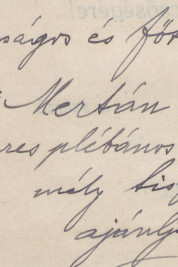 ságos és fő
Mertán
res plébános
mély tisz
ajánlj